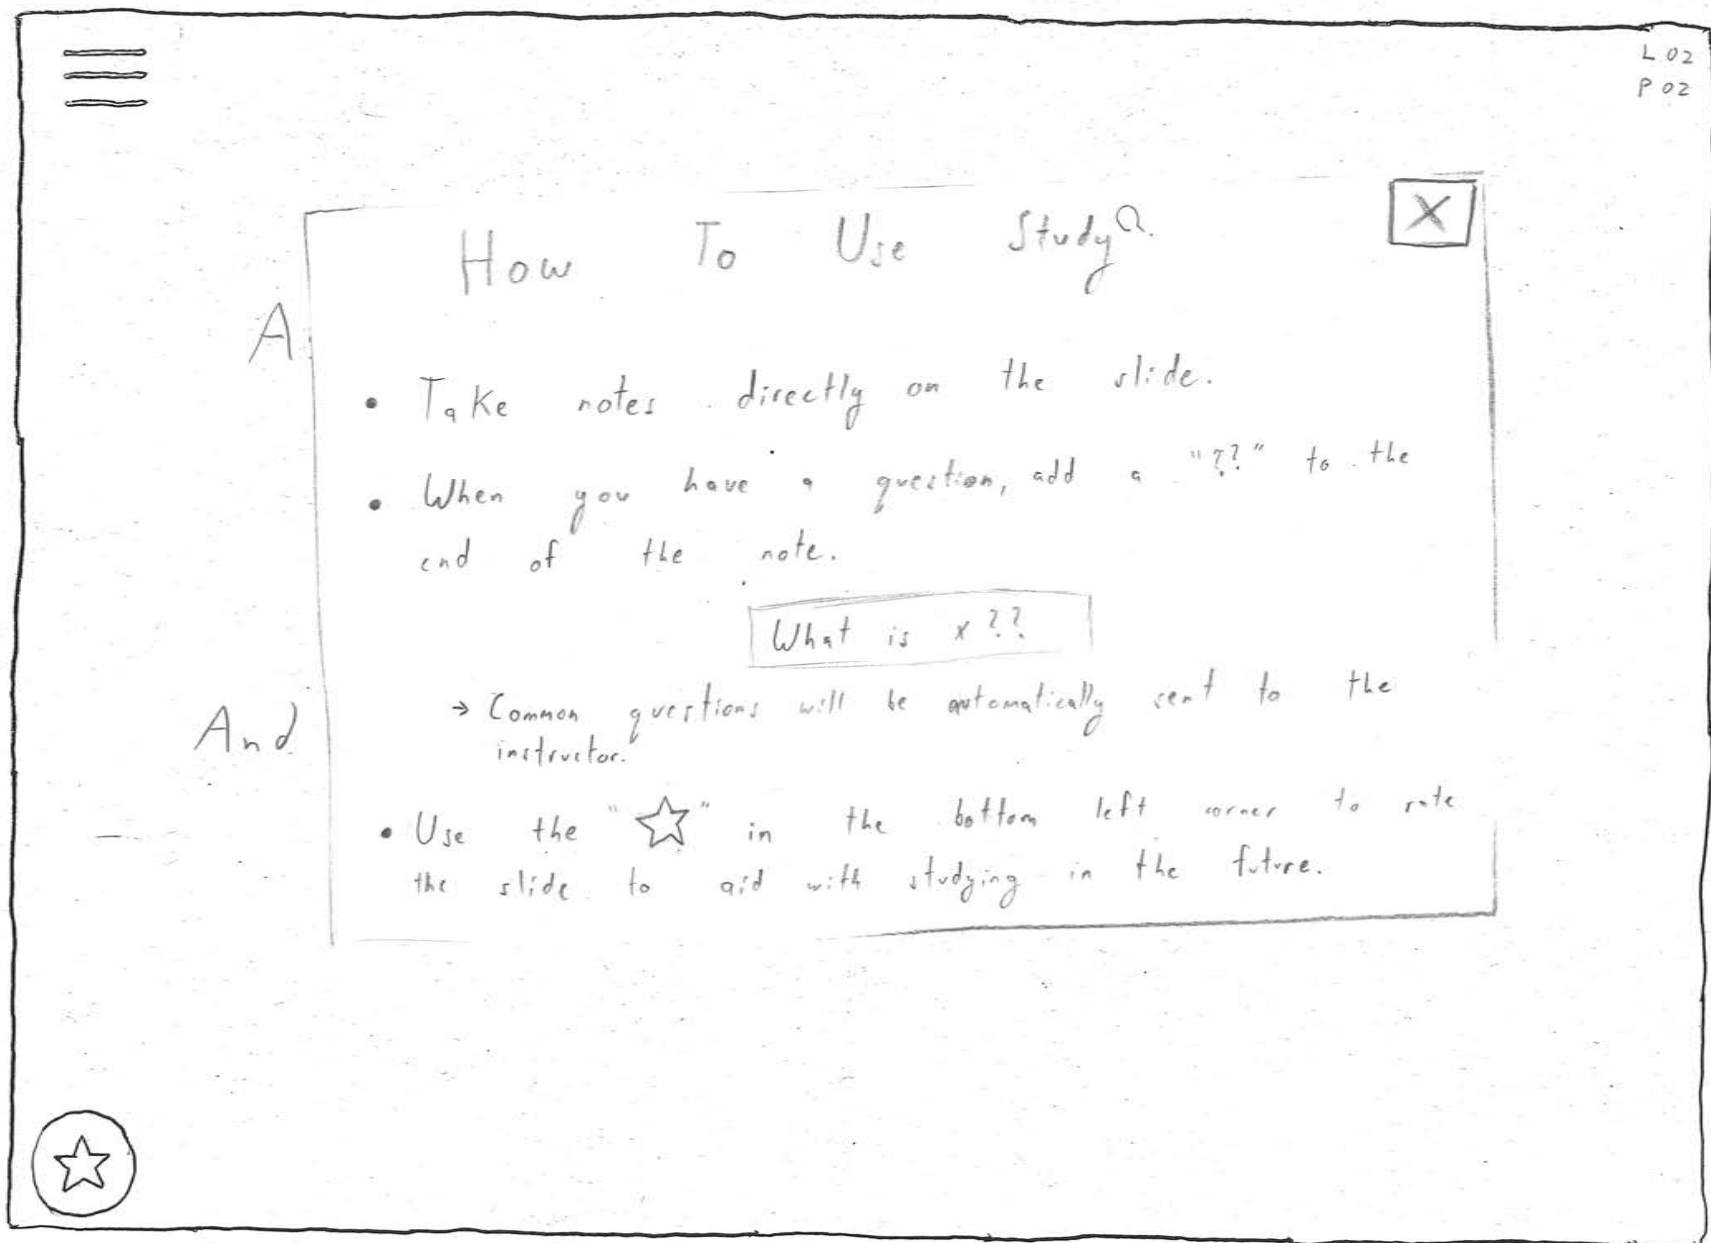 L 02
P 02
How To Use StudyQ.
A
• Take notes directly on the slide.
• When you have a question, add a "??" to the
end of the note.
What is x??
→ Common questions will be automatically sent to the
instructor.
And
• Use the "☆" in the bottom left corner to rate
the slide to aid with studying in the future.